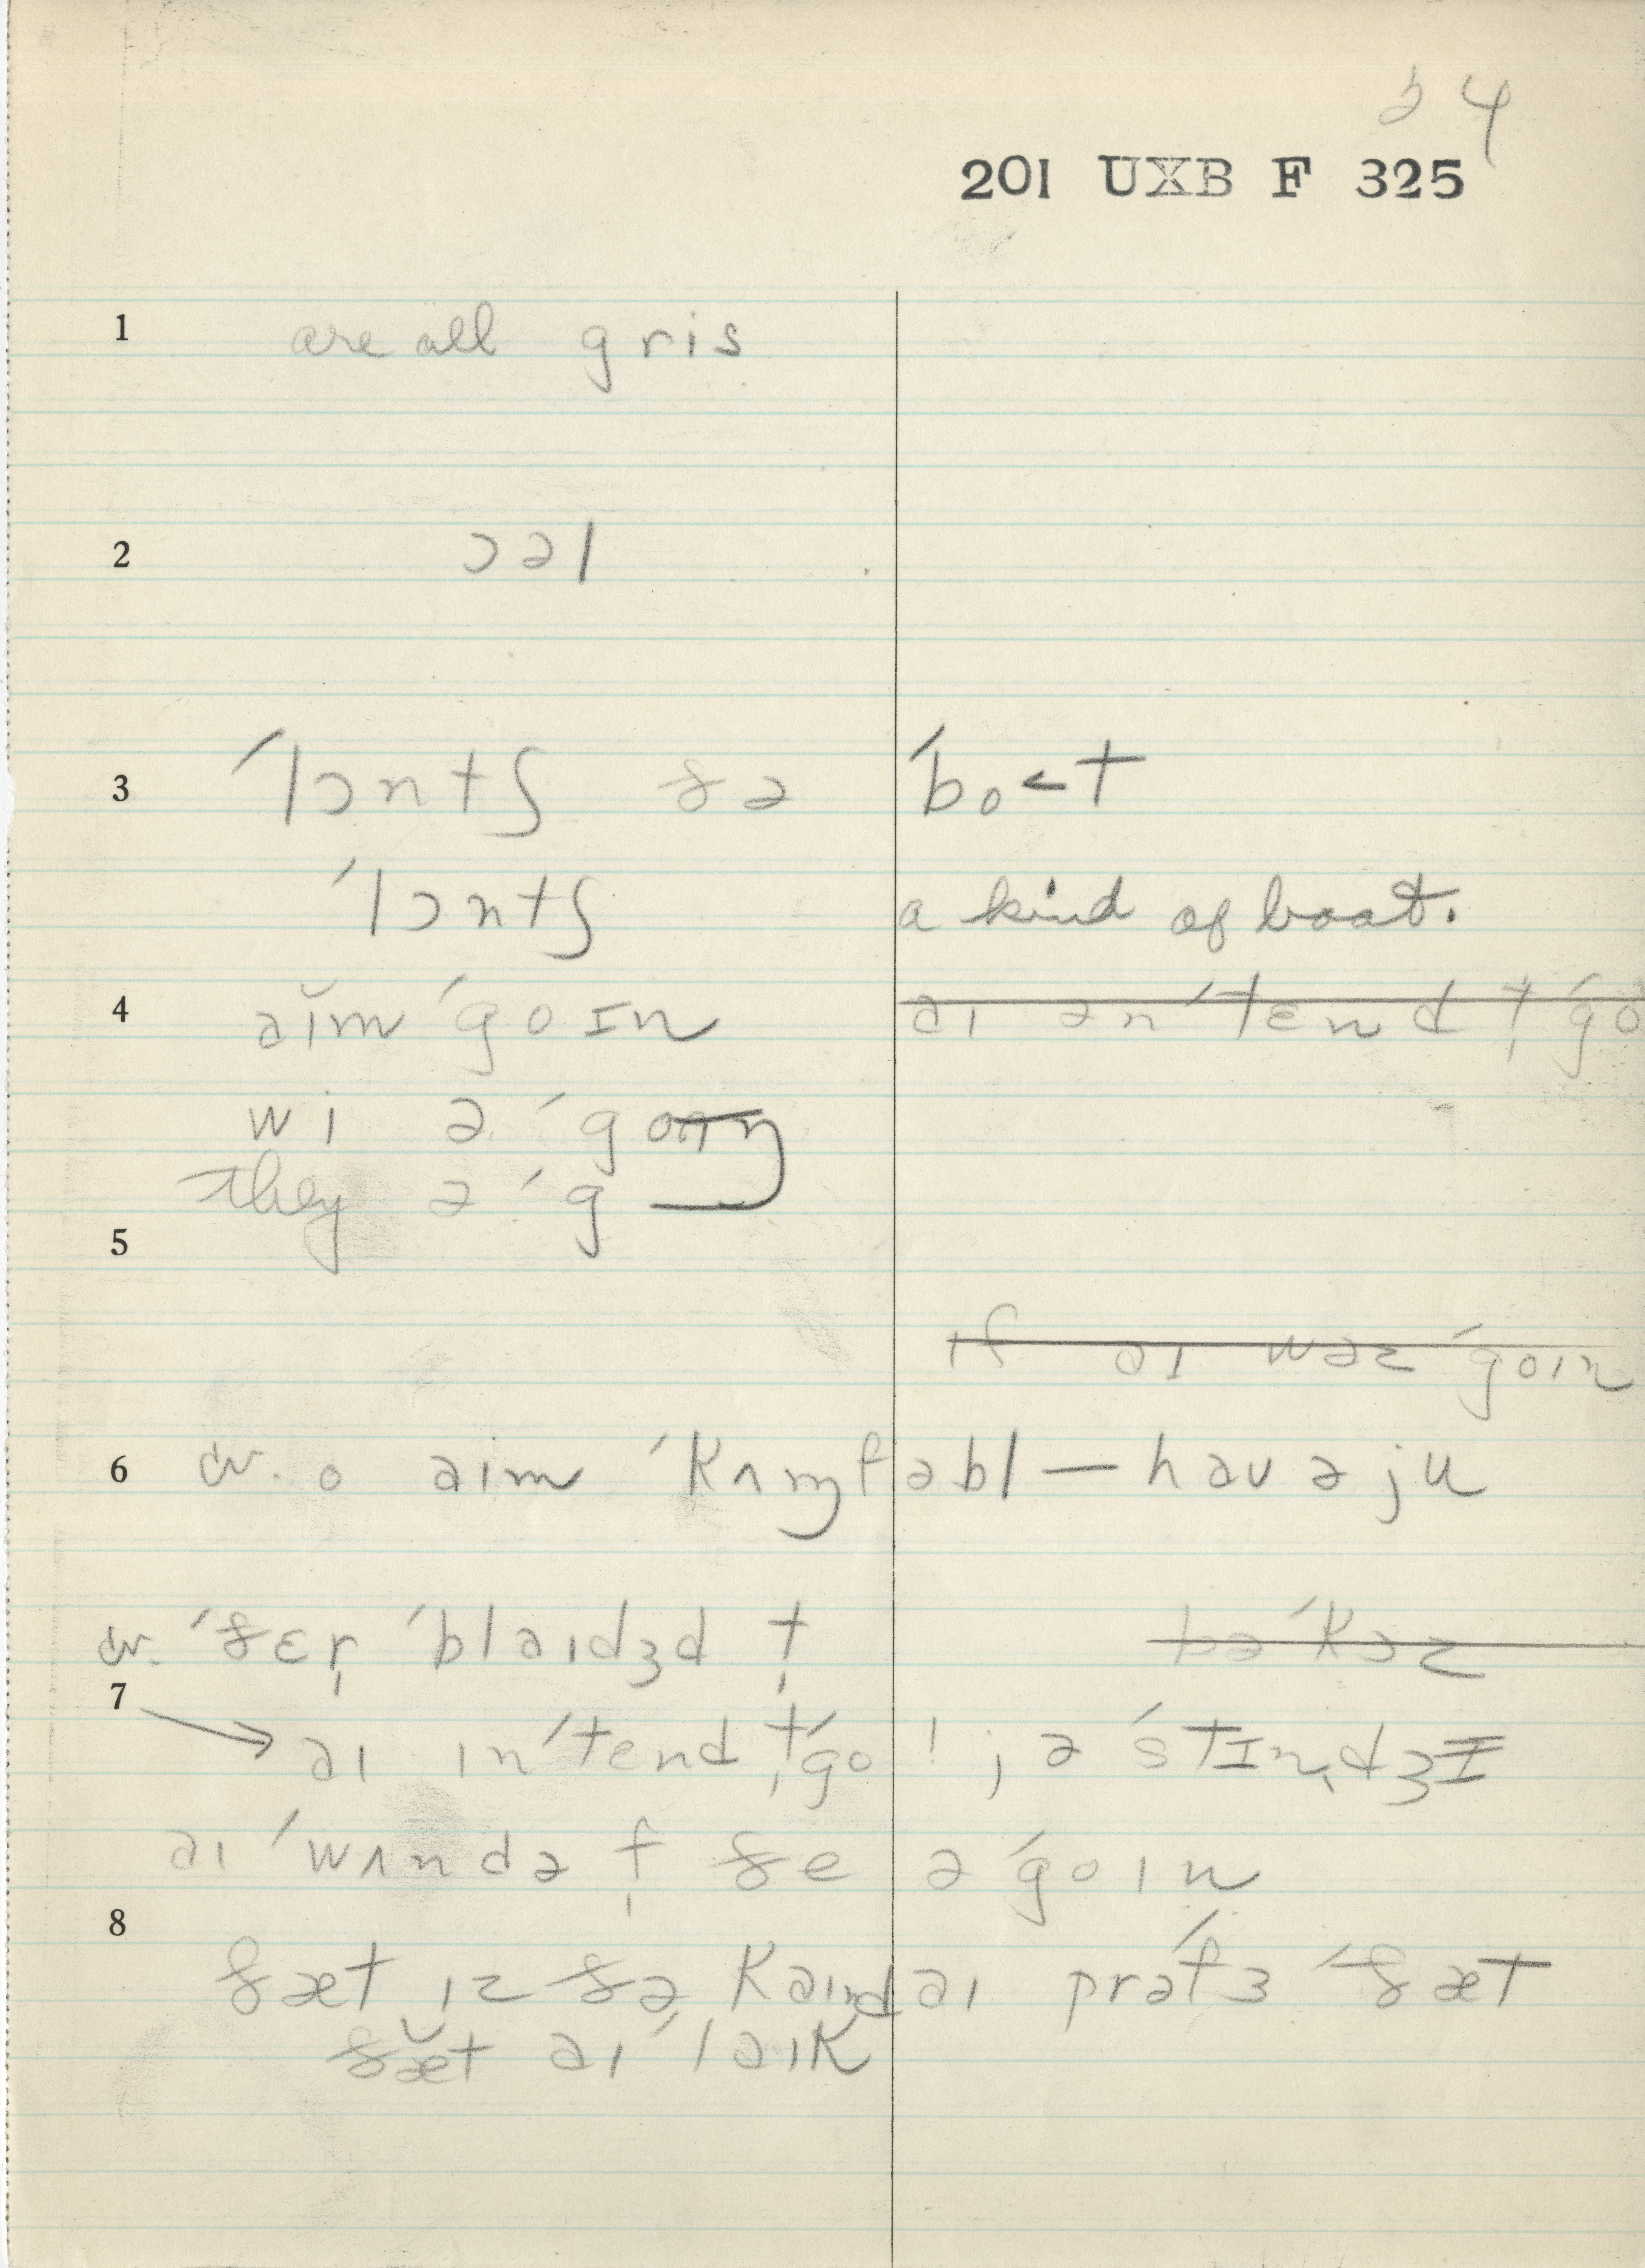 34
201 UXB F 325
1 are all gris
2 ɔəl
3 ˈlɔntʃ ðə ˈbo<t
ˈlɔntʃ a kind of boat.
4 əĭm ˈgoɪn əɪ ənˈtɛnd t̩ ˈgo
wi ə ˈgoɪn
they ə ˈg
5
ɪf əɪ wəz ˈgoɪn
6 cv. o aim ˈkʌɱfəbl — haʊ ə ju
cv. ˈðɛr̩ ˈblaɪdʒd t̩ bəˈkəz
7 → əɪ ɪnˈtend t̩ ˈgo ! ; ə ˈstɪn̩dʒɪ
əɪ ˈwʌndə f̩ ðe ə ˈgoɪn
8
ðæt ɪz ðə kaɪnd əɪ prəˈfɜ ˈðæt
ðæ̆t əɪ ˈləɪk